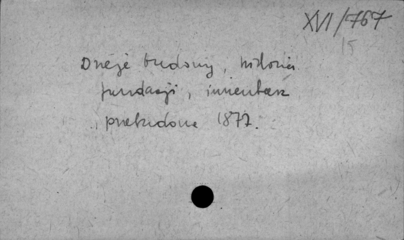 XVI/767
15
Dzieje budowy, historia
fundacji, inwentarz
przebudowa 1877.